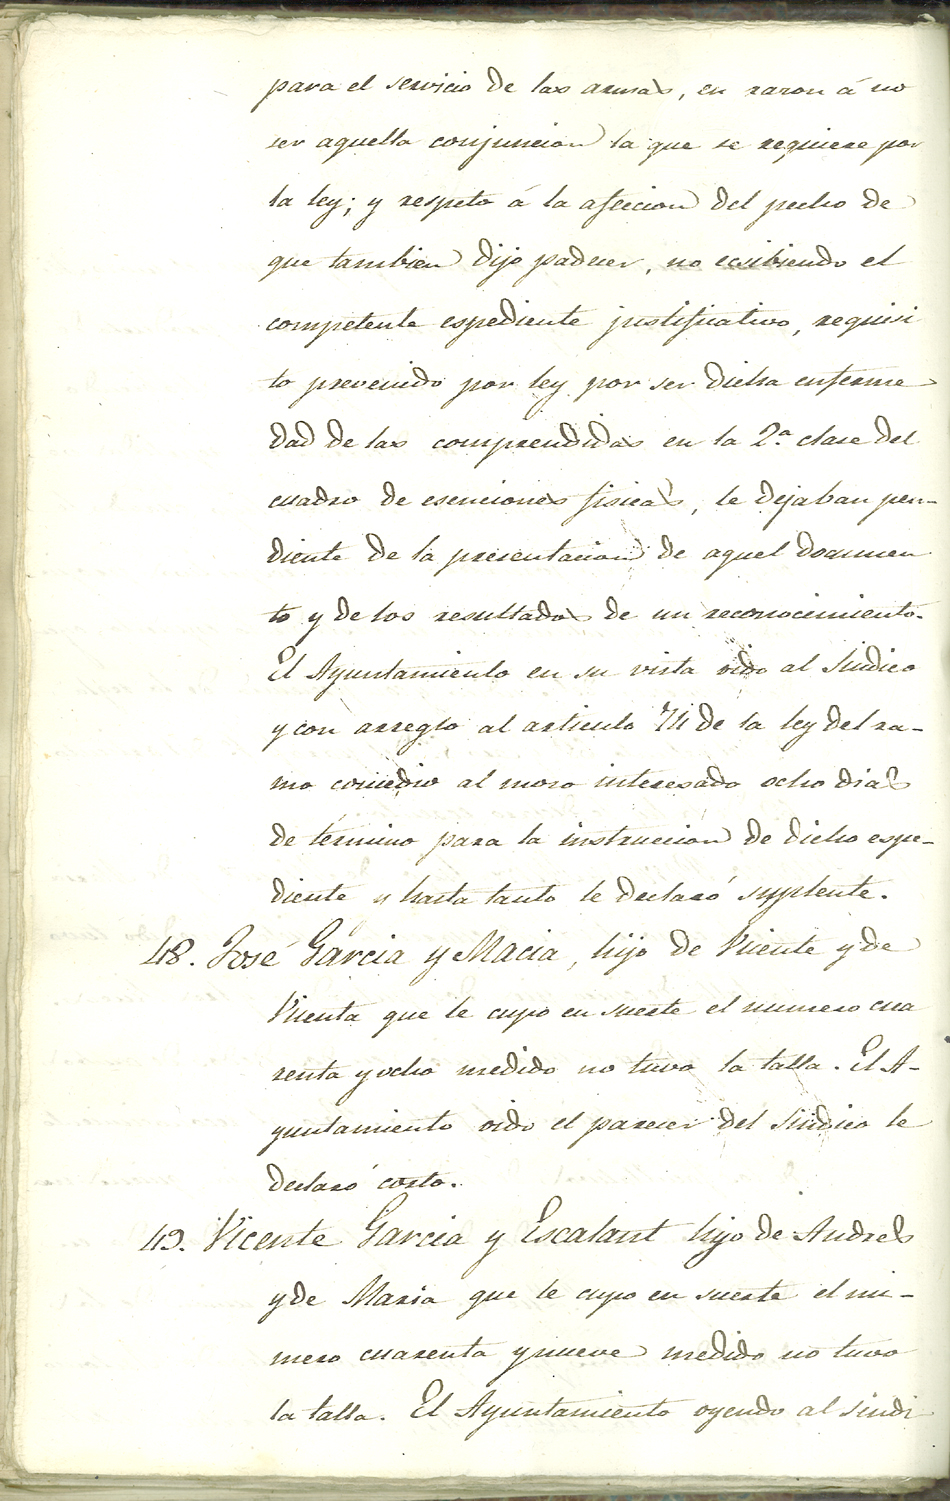 para el servicio de las armas, en razon á no
ser aquella conjuncion la que se requiere por
la ley; y respeto á la afeccion del pecho de
que tambien dijo padecer, no ecsibiendo el
competente espediente justificativo, requisi
to prevenido por ley por ser dicha enferme
dad de las comprendidas en la 2.ª clase del
cuadro de esenciones fisicas, le dejaban pen-
diente de la presentacion de aquel documen
to y de los resultados de un reconocimiento.
El Ayuntamiento en su vista oido al Sindico
y con arreglo al articulo 74 de la ley del ra-
mo concedio al mozo interesado ocho dias
de término para la instruccion de dicho espe-
diente y hasta tanto le declaró suplente.
48. José Garcia y Macia, hijo de Vicente y de
Vicenta que le cupo en suerte el numero cua
renta y ocho medido no tuvo la talla. El A-
yuntamiento oido el parecer del Sindico le
declaró corto.
49. Vicente Garcia y Escalant hijo de Andres
y de Maria que le cupo en suerte el nu-
mero cuarenta y nueve medido no tuvo
la talla. El Ayuntamiento oyendo al sindi